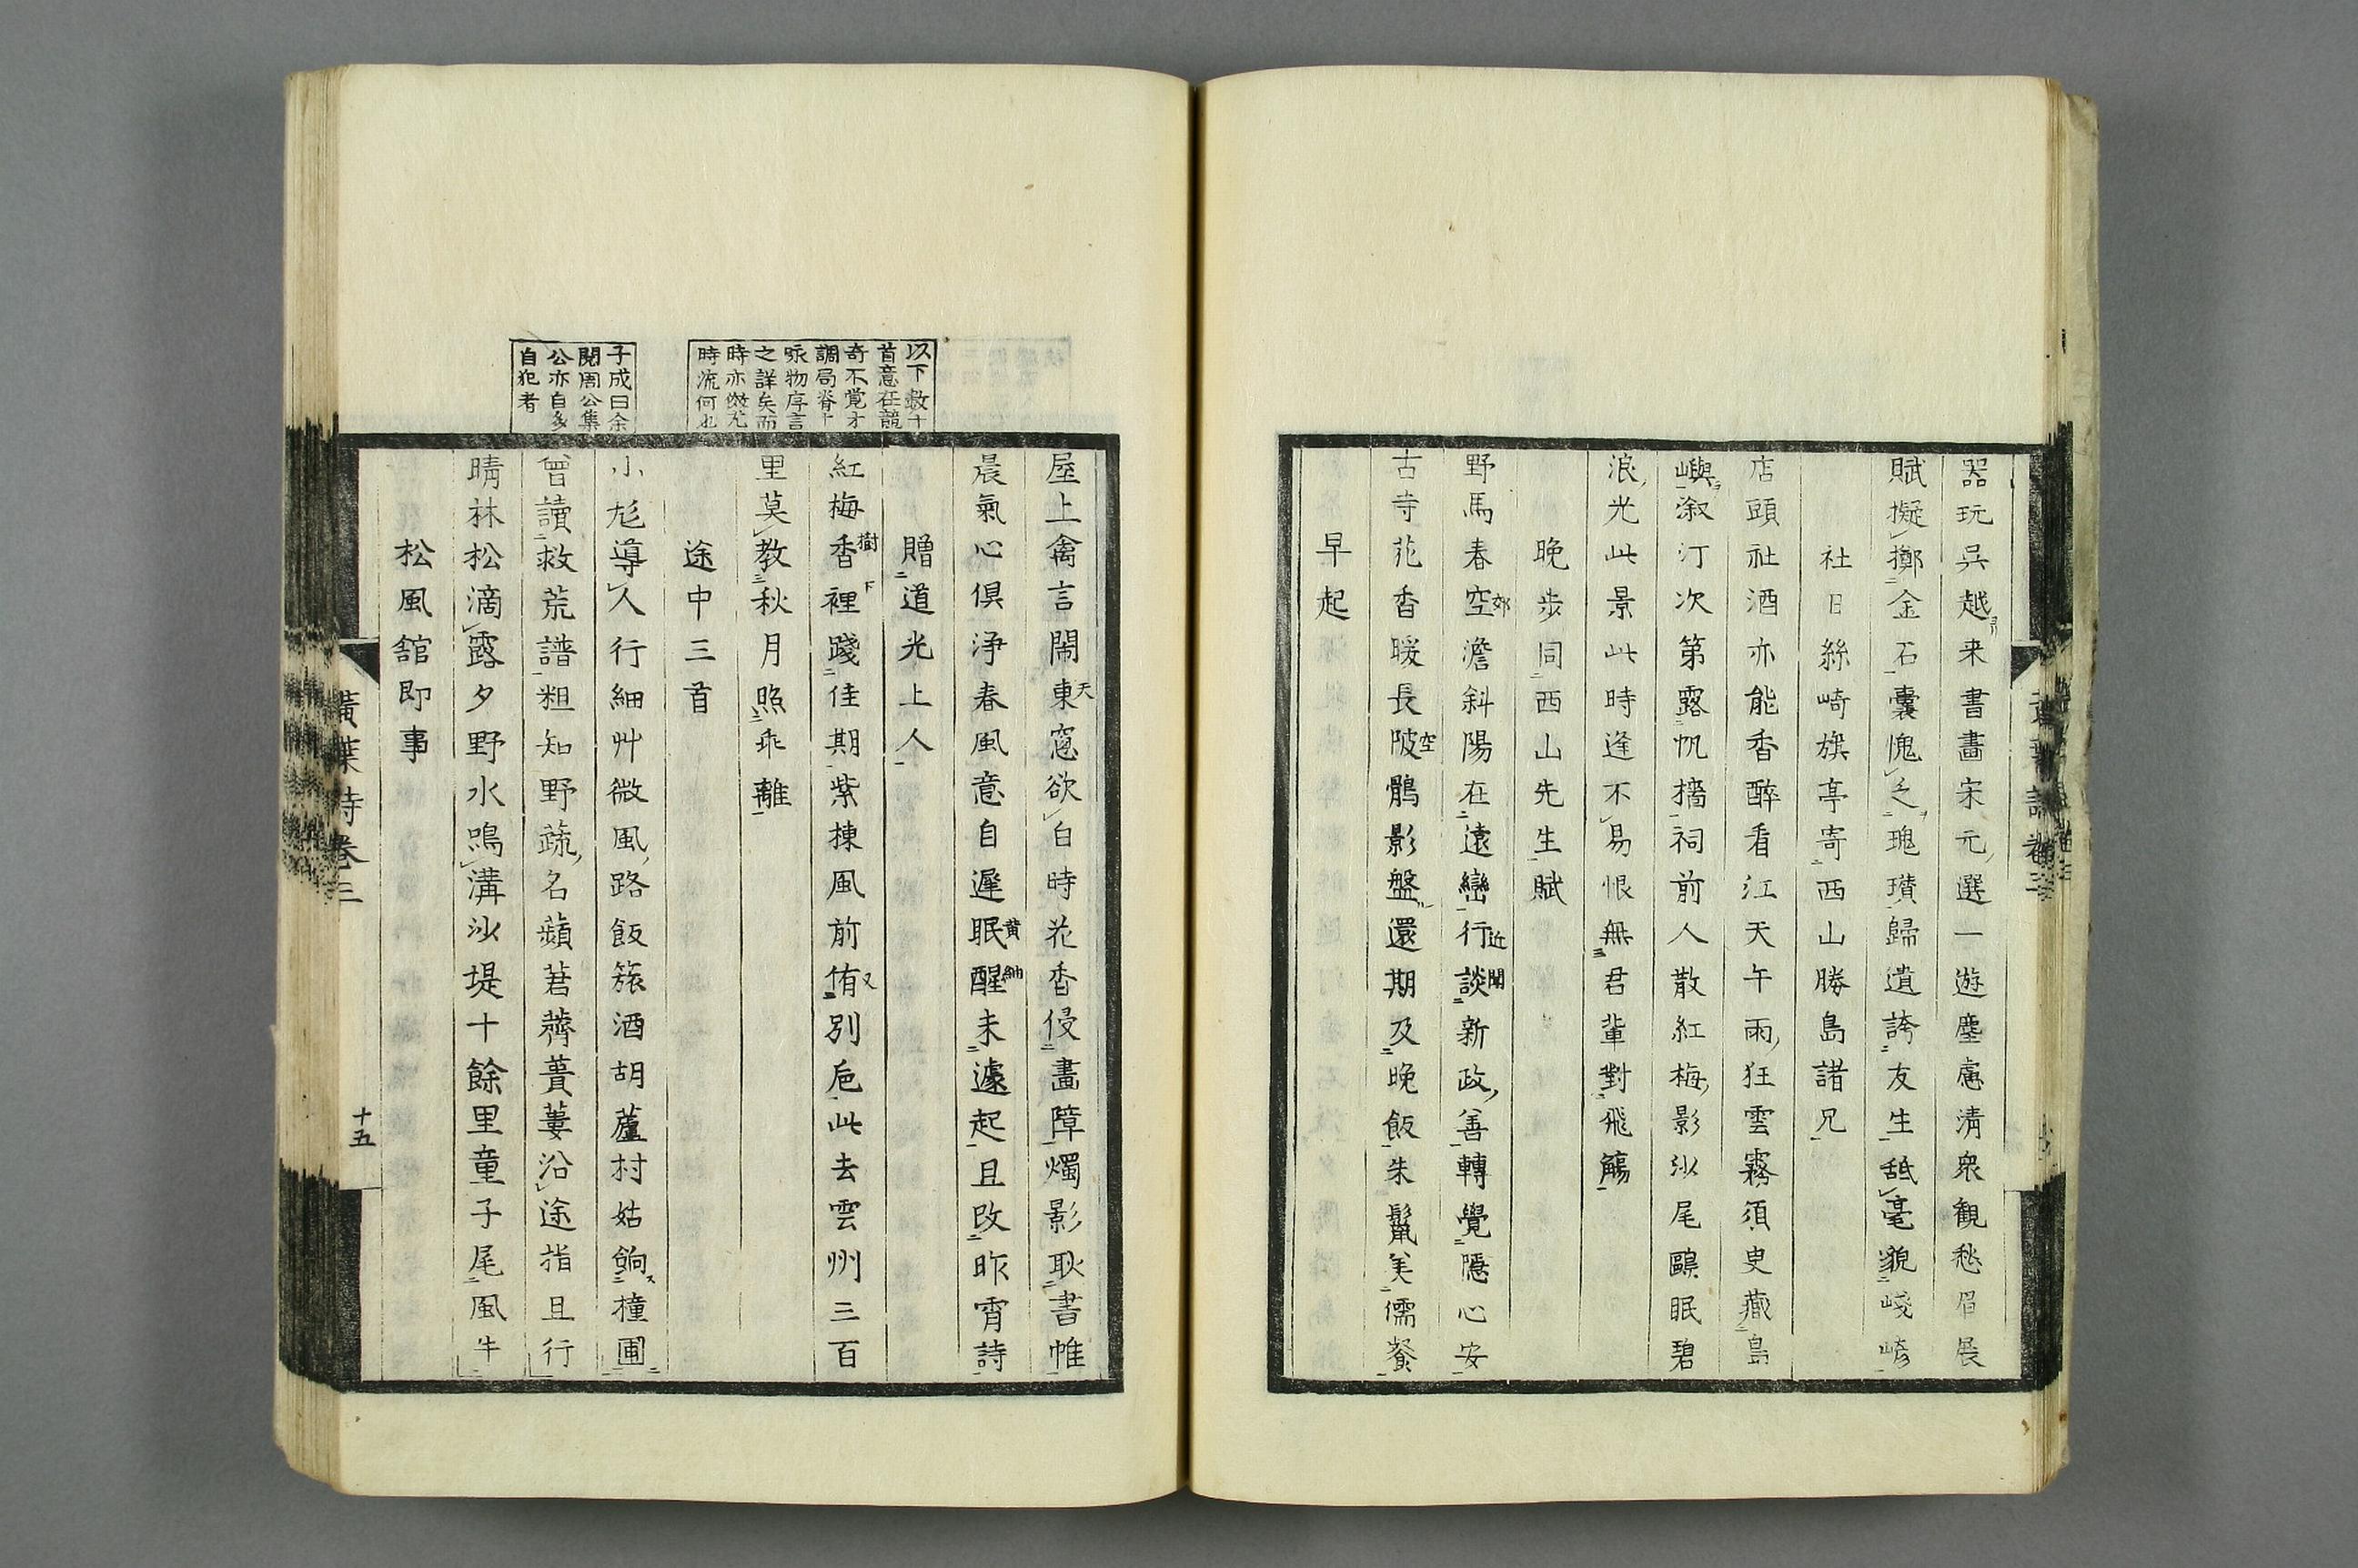 器玩呉越来書畫宋元選一遊塵慮清衆観愁眉展
賦擬擲金石嚢愧乏瑰瓚歸遺誇友生舐毫貌崚嶒
社日絲崎旗亭寄西山勝島諸兄
店頭社酒亦能香醉看江天午雨狂雲霧須臾藏島
嶼漵汀次第露帆檣祠前人散紅梅影沙尾鷗眠碧
浪光此景此時逢不易恨無君輩對飛觴
晩歩同西山先生賦
野馬春空澹斜陽在遠巒行談新政善轉覺隱心安
郊
近聞
古寺花香暖長陂鶻影盤還期及晩飯朱鬣美儒餐
空
早起
屋上禽言鬧東窓欲白時花香侵畫障燭影耿書帷
天
晨氣心倶浄春風意自遲眠醒未遽起且改昨宵詩
贈道光上人
紅梅香裡踐佳期紫楝風前侑別卮此去雲州三百
樹下
又
里莫教秋月照乖離
途中三首
小尨導人行細艸微風路飯簱酒胡蘆村姑餉橦圃
曾讀救荒譜粗知野蔬名蘋莙薺蕢蔞沿途指且行
晴林松滴露夕野水鳴溝沙堤十餘里童子尾風牛
松風舘即事
以下数十
首意在競
奇不覚才
調局脊十
咏物序言
之詳矣而
時亦傚尤
時流何也
子成曰余
閲周公集
公亦自多
自犯者
黄葉詩巻三
十五